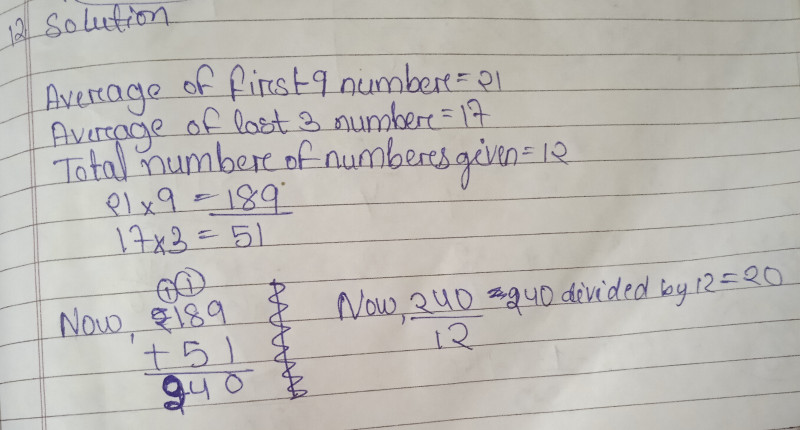 12 Solution
Average of first 9 number = 21
Average of last 3 number = 17
Total number of numbers given = 12
21 x 9 = 189
17 x 3 = 51
1 1
Now, 189
+ 51
240
Now, 240 = 240 divided by 12 = 20
12